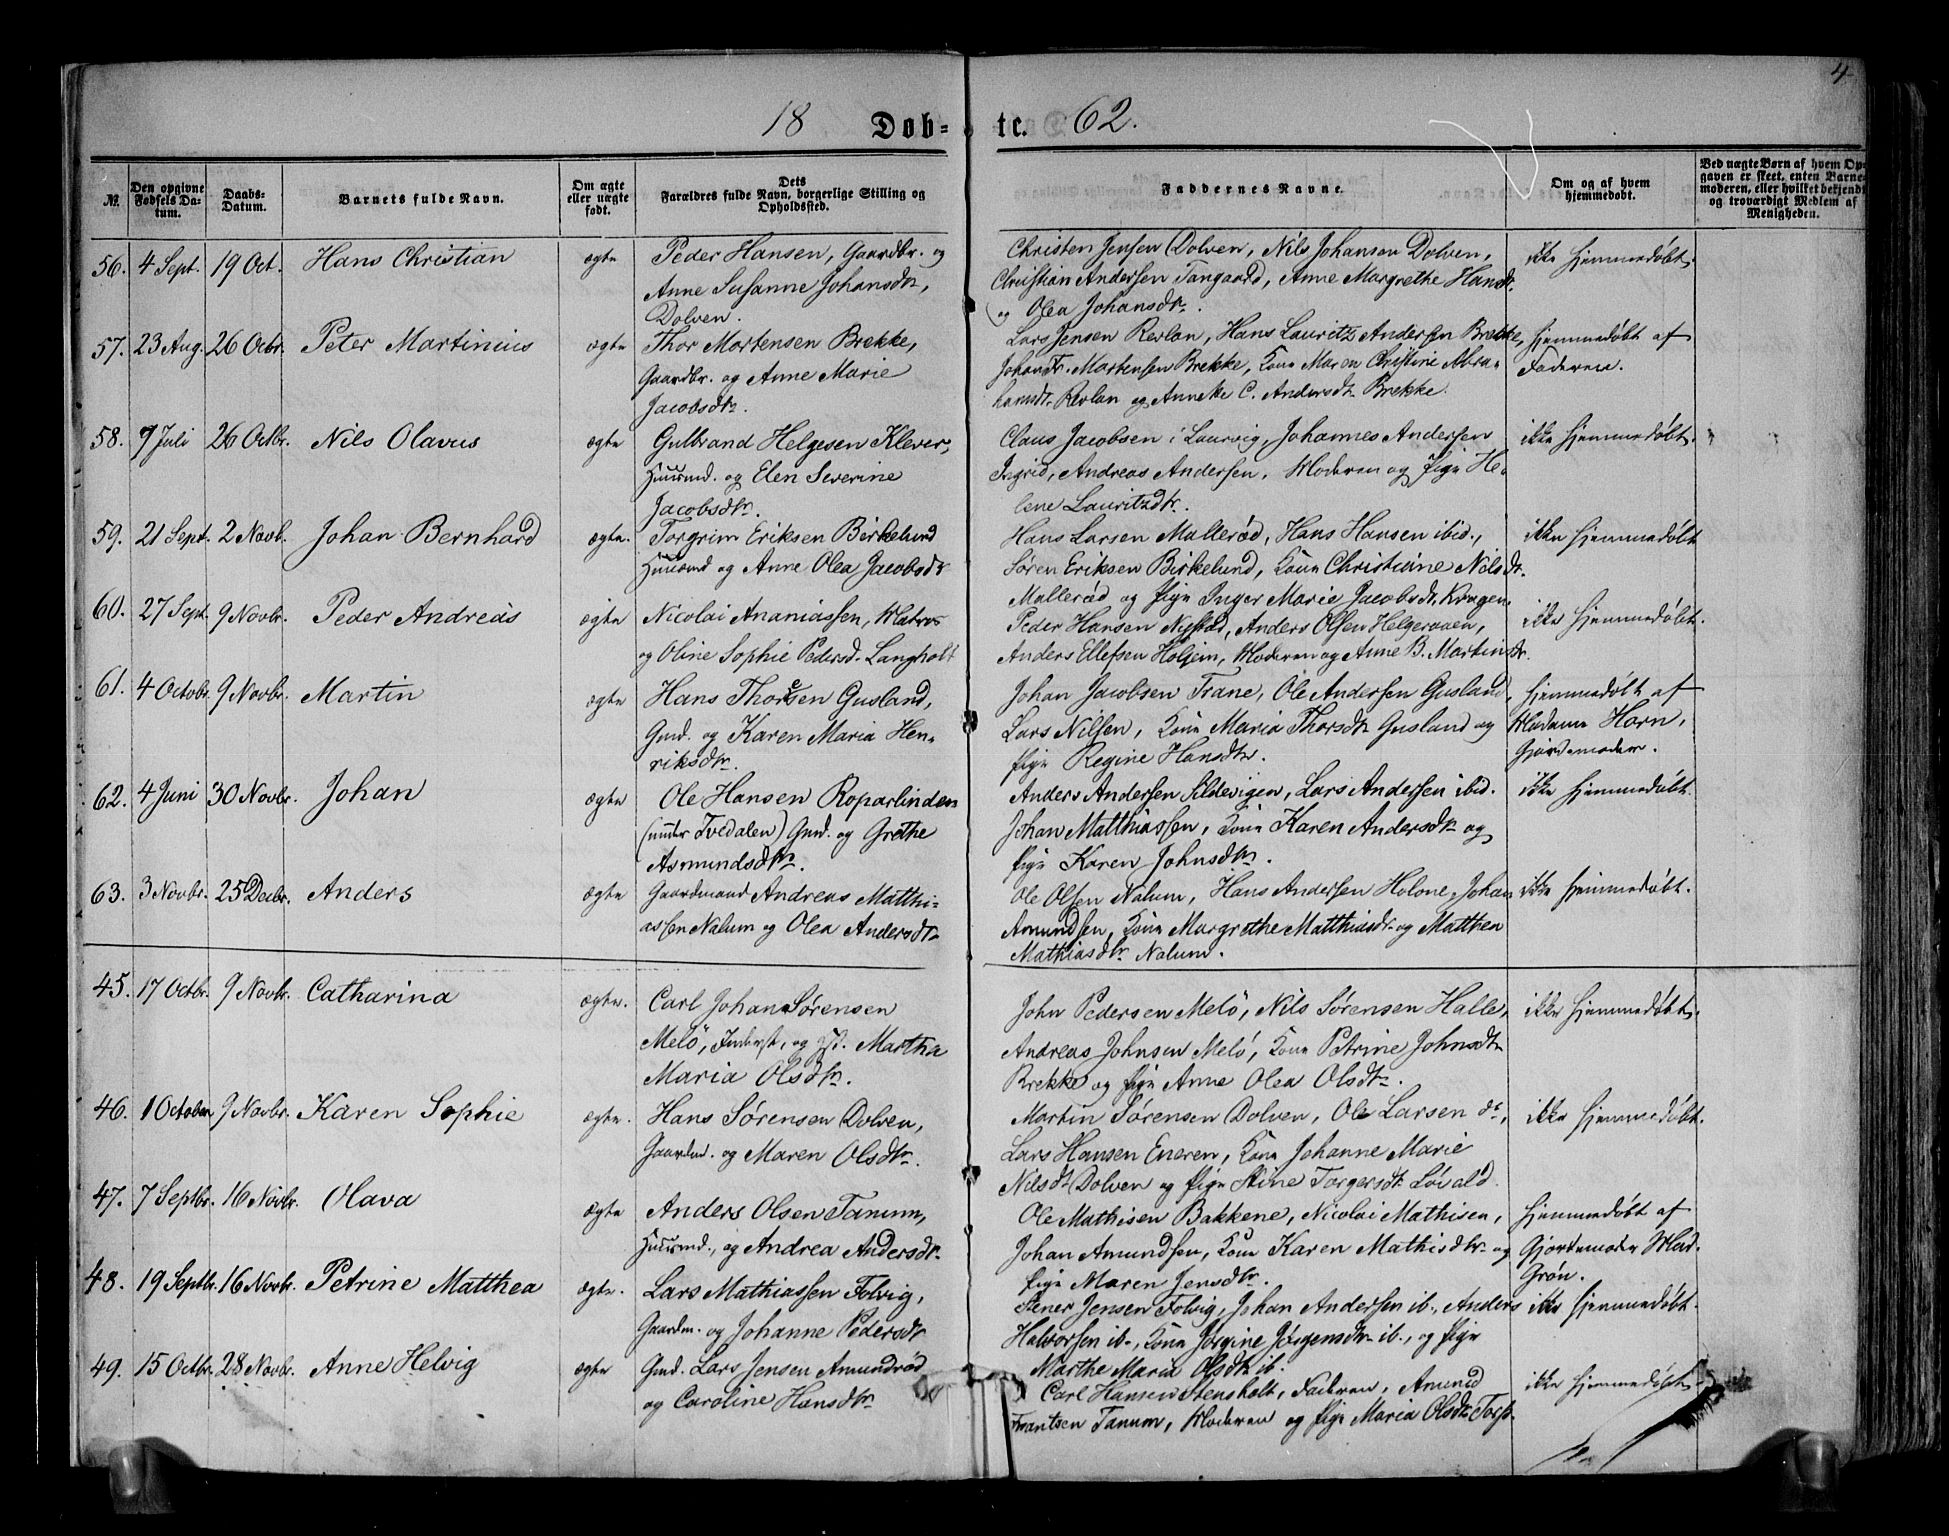 4
18 Døb- te. 62.
№. Den opgivne Fødsels Datum. Daabs-Datum. Barnets fulde Navn. Om ægte eller uægte født. Dets Forældres fulde Navn, borgerlige Stilling og Opholdssted. Faddernes Navne. Om og af hvem hjemmedøbt. Ved uægte Børn af hvem Opgaven er skeet, enten Barnemoderen, eller hvilket bekjendt og troværdigt Medlem af Menigheden.
56. 4 Sept. 19 Oct. Hans Christian ægte Peder Hansen, Gaardbr. og
Anne Susanne Johansdtr,
Dolven.
Christen Jensen Dolven, Nils Johansen Dolven,
Christian Andersen Tangaard, Anne Margrethe Hansdtr.
og Olea Johansdtr.
ikke hjemmedøbt.
57. 23 Aug. 26 Octbr. Peter Martinius ægte Thor Mortensen Brekke,
Gaardbr. og Anne Marie
Jacobsdtr.
Lars Jensen Revlan, Hans Lauritz Andersen Brekke,
Johan Fr. Mortensen Brekke, Kone Maren Christine Abra-
hamsdtr. Revlan og Anneke C. Andersdtr. Brekke.
hjemmedøbt af
Faderen.
58. 7 Juli 26 Octbr. Nils Olavus ægte Gulbrand Helgesen Klever,
Huusmd. og Elen Severine
Jacobsdtr.
Claus Jacobsen i Laurvig, Johannes Andersen
Ingrid, Andreas Andersen, Moderen og pige He-
lene Lauritzdtr.
ikke hjemmedøbt.
59. 21 Sept. 2 Novb. Johan Bernhard ægte. Torgrim Eriksen Birkelund
Huusmd og Anne Olea Jacobsdtr
Hans Larsen Mallerød, Hans Hansen ibid.,
Søren Eriksen Birkelund, Kone Christiine Nilsdtr.
Mallerød og pige Inger Marie Jacobsdt. Krogen.
ikke hjemmedøbt
60. 27 Sept. 9 Novbr. Peder Andreas ægte Nicolai Ananiassen, Matros
og Oline Sophie Pedersd. Langholt
Peder Hansen Nystad, Anders Olsen Helgeroaen,
Anders Ellefsen Holjem, Moderen og Anne B. Martinsdr.
ikke hjemmedøbt.
61. 4 Octobr. 9 Novbr. Martin ægte Hans Thorsen Gusland,
Gmd. og Karen Maria Hen-
riksdtr.
Johan Jacobsen Trane, Ole Andersen Gusland,
Lars Nilsen, Kone Maria Thorsdtr Gusland og
pige Regine Hansdtr.
hjemmedøbt af
Madame Horn,
Gjordemoder.
62. 4 Juni 30 Novbr. Johan ægte Ole Hansen Roparlinden
(under Tvedalen) Gmd. og Grethe
Asmundsdtr.
Anders Andersen Sildevigen, Lars Andersen ibid.
Johan Matthiassen, Kone Karen Andersdtr og
pige Karen Johnsdtr.
ikke hjemmedøbt.
63. 3 Novbr. 25 Decbr. Anders ægte Gaardmand Andreas Matthi-
assen Nalum og Olea Andersdtr
Ole Olsen Nalum, Hans Andersen Holone, Johan
Amundsen, Kone Margrethe Matthiasdtr og Matthea
Mathiasdtr Nalum.
ikke hjemmedøbt.
45. 17 Octbr. 9 Novbr. Catharina ægte. Carl Johan Sørensen
Melö, Inderst, og Martha
Maria Olsdtr.
John Pedersen Melö, Nils Sørensen Halle,
Andreas Johnsen Melö, Kone Petrine Johnsdtr
Brekke og pige Anne Olea Olsdtr.
ikke hjemmedøbt.
46. 1 October 9 Novbr. Karen Sophie ægte. Hans Sørensen Dolven,
Gaardm. og Maren Olsdtr.
Martin Sørensen Dolven, Ole Larsen do,
Lars Hansen Eneren, Kone Johanne Marie
Nilsdt Dolven og pige Stine Torgersdt. Løvald.
ikke hjemmedøbt.
47. 7 Septbr. 16 Novbr. Olava ægte Anders Olsen Tanum,
Huusmd., og Andrea Andersdtr.
Ole Mathisen Bakkene, Nicolai Mathisen,
Johan Amundsen, Kone Karen Mathisdtr og
pige Maren Jensdtr.
hjemmedøbt af
Gjordemoder Mad.
Grøn.
48. 19 Septbr. 16 Novbr. Petrine Matthea ægte. Lars Mathiassen Folvig,
Gaardm. og Johanne Pedersdt
Stener Jensen Folvig, Johan Andersen ib., Anders
Halvorsen ib., Kone Jørgine Jørgensdtr. ib., og pige
Marthe Maria Olsdtr ib.
ikke hjemmedøbt.
49. 15 Octbr. 28 Novbr. Anne Helvig ægte Gmd. Lars Jensen Amundrød
og Caroline Hansdtr.
Carl Hansen Stensholt, Faderen, Amund
Frantsen Tanum, Moderen og pige Maria Olsdt. Torp.
ikke hjemmedøbt.